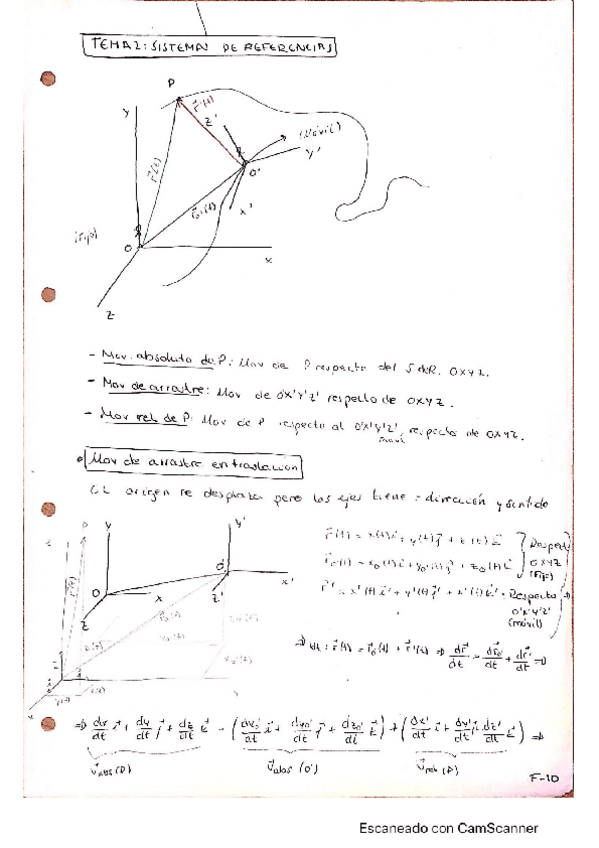 TEMA 2: SISTEMAS DE REFERENCIAS
P
r'(t)
y
z'
(Móvil)
y'
r(t)
O'
ro'(t)
x'
(Fijo)
O
x
z
- Mov. absoluto de P: Mov de P respecto del S de R. OXYZ.
- Mov de arrastre: Mov de O'X'Y'Z' respecto de OXYZ.
- Mov rel de P: Mov de P respecto al O'X'Y'Z', respecto de OXYZ.
móvil
• Mov de arrastre en traslación
El origen se desplaza pero los ejes tiene = dirección y sentido
y
y'
O'
x'
O
x
z'
z
r⃗(t) = x(t)i⃗ + y(t)j⃗ + z(t)k⃗
r⃗o(t) = xo(t)i⃗ + yo(t)j⃗ + zo(t)k⃗
Respecto
OXYZ
(Fijo)
r⃗' = x'(t)i⃗ + y'(t)j⃗ + z'(t)k⃗ - Respecto ⇒
O'X'Y'Z'
(móvil)
r⃗(t) = r⃗o(t) + r⃗'(t) ⇒ dr⃗/dt = dr⃗o/dt + dr⃗'/dt ⇒
⇒ dx/dt i⃗ + dy/dt j⃗ + dz/dt k⃗ = (dxo'/dt i⃗ + dyo'/dt j⃗ + dzo'/dt k⃗) + (dx'/dt i⃗ + dy'/dt j⃗ + dz'/dt k⃗) ⇒
v⃗abs (P)
v⃗abs (O')
v⃗rel (P)
F-10
Escaneado con CamScanner